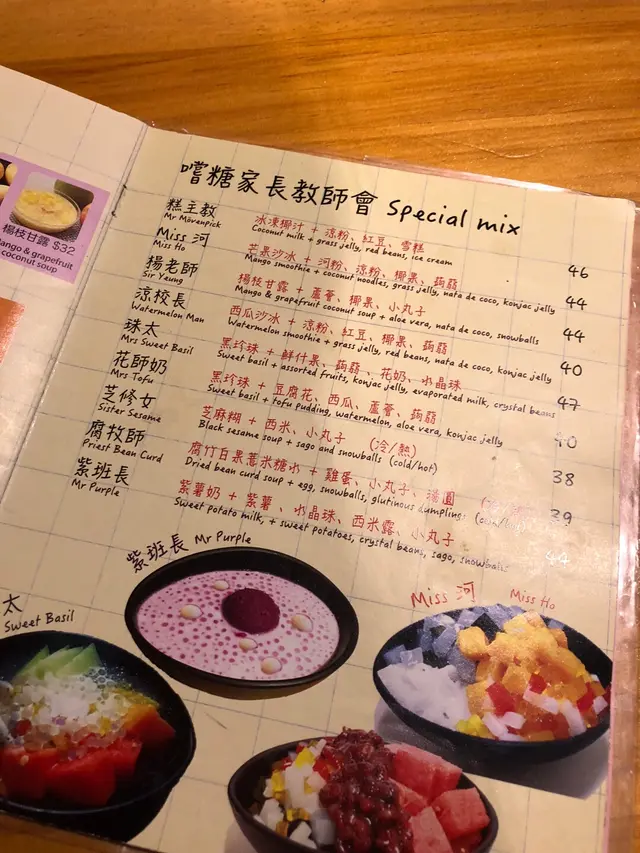 楊枝甘露 $32
ango & grapefruit
coconut soup
嚐糖家長教師會 Special mix
糕主教 冰凍椰汁 + 涼粉、紅豆、雪糕
Mr Mövenpick Coconut milk + grass jelly, red beans, ice cream 46
Miss 河 芒果沙冰 + 河粉、涼粉、椰果、蒟蒻
Miss Ho Mango smoothie + coconut noodles, grass jelly, nata de coco, konjac jelly 44
楊老師 楊枝甘露 + 蘆薈、椰果、小丸子
Sir Yeung Mango & grapefruit coconut soup + aloe vera, nata de coco, snowballs 44
涼校長 西瓜沙冰 + 涼粉、紅豆、椰果、蒟蒻
Watermelon Man Watermelon smoothie + grass jelly, red beans, nata de coco, konjac jelly 40
珠太 黑珍珠 + 鮮什果、蒟蒻、花奶、水晶珠
Mrs Sweet Basil Sweet basil + assorted fruits, konjac jelly, evaporated milk, crystal beans 47
花師奶 黑珍珠 + 豆腐花、西瓜、蘆薈、蒟蒻
Mrs Tofu Sweet basil + tofu pudding, watermelon, aloe vera, konjac jelly 40
芝修女 芝麻糊 + 西米、小丸子 (冷/熱)
Sister Sesame Black sesame soup + sago and snowballs (cold/hot) 38
腐牧師 腐竹白果薏米糖水 + 雞蛋、小丸子、湯圓
Priest Bean Curd Dried bean curd soup + egg, snowballs, glutinous dumplings 39
紫班長 紫薯奶 + 紫薯、水晶珠、西米露、小丸子
Mr Purple Sweet potato milk, + sweet potatoes, crystal beans, sago, snowballs 44
紫班長 Mr Purple
Miss 河 Miss Ho
太
Sweet Basil